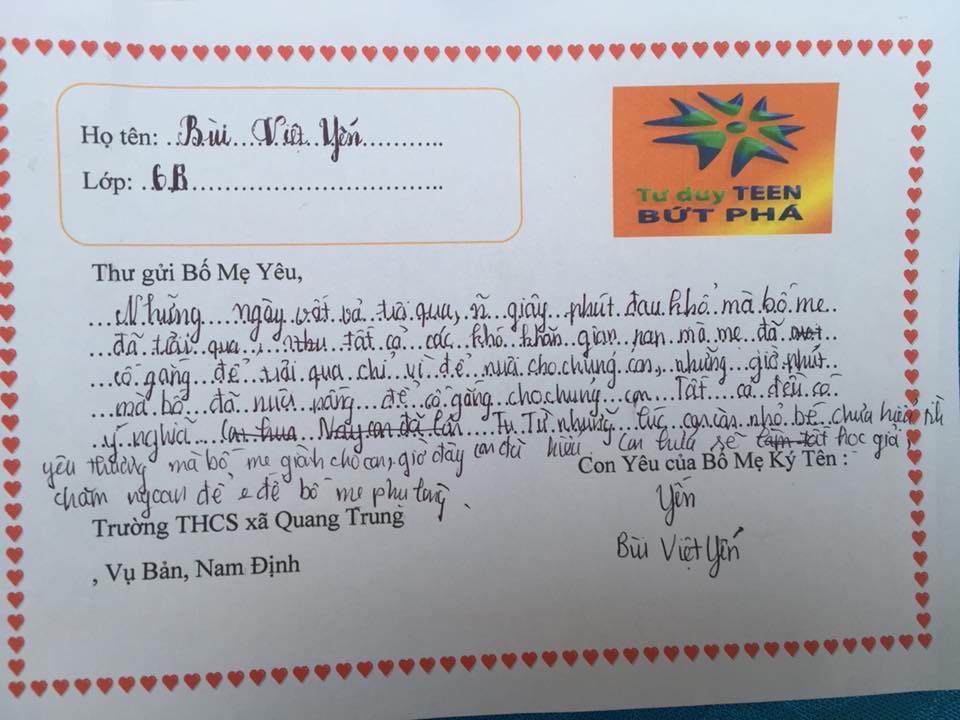 Họ tên: Bùi Việt Yến
Lớp: 6B
Tư duy TEEN
BỨT PHÁ
Thư gửi Bố Mẹ Yêu,
Những ngày vất vả trôi qua, ~ giây phút đau khổ mà bố mẹ
đã trải qua, tất cả các khó khăn gian nan mà mẹ đã
cố gắng để trải qua chỉ vì để nuôi cho chúng con, những giờ phút
mà bố đã để cố gắng cho chúng con Tất cả đều có
ý nghĩa Con hứa Nay con đã lớn Từ Từ những lúc con còn nhỏ bé chưa hiểu
yêu thương mà bố mẹ giành cho con, giờ đây con đã hiểu. Con hứa sẽ làm tốt học giỏi,
chăm ngoan để để bố mẹ
Con Yêu của Bố Mẹ Ký Tên :
Yến
Bùi Việt Yến
Trường THCS xã Quang Trung
, Vụ Bản, Nam Định